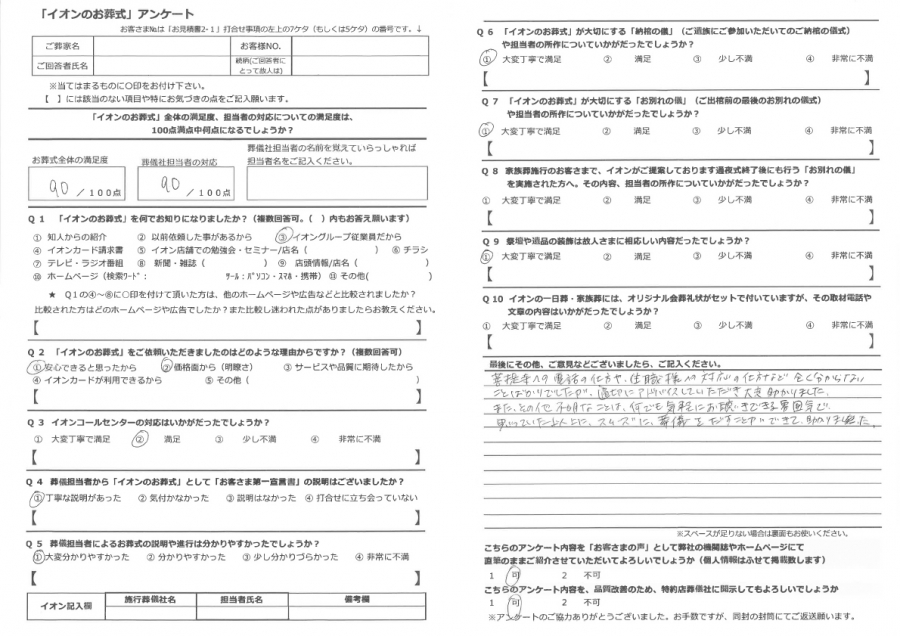 「イオンのお葬式」アンケート
お客さま№は「お見積書2-1」打合せ事項の左上の7ケタ（もしくは5ケタ）の番号です。↓
ご葬家名 お客様NO.
ご回答者氏名 続柄(ご回答者にとって故人は)
※当てはまるものに〇印をお付け下さい。
【　】には該当のない項目や特にお気づきの点をご記入願います。
「イオンのお葬式」全体の満足度、担当者の対応についての満足度は、
100点満点中何点になるでしょうか？
お葬式全体の満足度 葬儀社担当者の対応 葬儀社担当者の名前を覚えていらっしゃれば
担当者名をご記入ください。
90 / 100点 90 / 100点
Q 1 「イオンのお葬式」を何でお知りになりましたか？（複数回答可。（　）内もお答え願います）
① 知人からの紹介 ② 以前依頼した事があるから ③ イオングループ従業員だから
④ イオンカード請求書 ⑤ イオン店舗での勉強会・セミナー/店名（　） ⑥ チラシ
⑦ テレビ・ラジオ番組 ⑧ 新聞・雑誌（　） ⑨ 店頭情報/店名（　）
⑩ ホームページ（検索ﾜｰﾄﾞ： ﾂｰﾙ：ﾊﾟｿｺﾝ・ｽﾏﾎ・携帯） ⑪ その他(　)
★ Q1の④～⑧に〇印を付けて頂いた方は、他のホームページや広告などと比較されましたか？
比較された方はどのホームページや広告でしたか？また比較し迷われた点がありましたらお教えください。
【　】
Q 2 「イオンのお葬式」をご依頼いただきましたのはどのような理由からですか？（複数回答可）
①安心できると思ったから ②価格面から（明瞭さ） ③ サービスや品質に期待したから
④ イオンカードが利用できるから ⑤ その他（　）
【　】
Q 3 イオンコールセンターの対応はいかがだったでしょうか？
① 大変丁寧で満足 ② 満足 ③ 少し不満 ④ 非常に不満
【　】
Q 4 葬儀担当者から「イオンのお葬式」として「お客さま第一宣言書」の説明はございましたか？
①丁寧な説明があった ② 気付かなかった ③ 説明はなかった ④ 打合せに立ち会っていない
【　】
Q 5 葬儀担当者によるお葬式の説明や進行は分かりやすかったでしょうか？
①大変分かりやすかった ② 分かりやすかった ③ 少し分かりづらかった ④ 非常に不満
【　】
イオン記入欄 施行葬儀社名 担当者氏名 備考欄
Q 6 「イオンのお葬式」が大切にする「納棺の儀」（ご遺族にご参加いただいてのご納棺の儀式）
や担当者の所作についていかがだったでしょうか？
① 大変丁寧で満足 ② 満足 ③ 少し不満 ④ 非常に不満
【　】
Q 7 「イオンのお葬式」が大切にする「お別れの儀」（ご出棺前の最後のお別れの儀式）
や担当者の所作についていかがだったでしょうか？
① 大変丁寧で満足 ② 満足 ③ 少し不満 ④ 非常に不満
【　】
Q 8 家族葬施行のお客さまで、イオンがご提案しております通夜式終了後にも行う「お別れの儀」
を実施された方へ。その内容、担当者の所作についていかがだったでしょうか？
① 大変丁寧で満足 ② 満足 ③ 少し不満 ④ 非常に不満
【　】
Q 9 祭壇や遺品の装飾は故人さまに相応しい内容だったでしょうか？
① 大変丁寧で満足 ② 満足 ③ 少し不満 ④ 非常に不満
【　】
Q 10 イオンの一日葬・家族葬には、オリジナル会葬礼状がセットで付いていますが、その取材電話や
文章の内容はいかがだったでしょうか？
① 大変丁寧で満足 ② 満足 ③ 少し不満 ④ 非常に不満
【　】
最後にその他、ご意見などございましたら、ご記入ください。
菩提寺への電話の仕方や、住職様への対応の仕方など全く分からない
ことばかりでしたが、適切にアドバイスしていただき大変助かりました。
また、その他不明なことは、何でも気軽にお聴きできる雰囲気で
思っていた以上に、スムーズに、葬儀をだすことができて、助かりました。
※スペースが足りない場合は裏面もお使いください。
こちらのアンケート内容を「お客さまの声」として弊社の機関誌やホームページにて
直筆のままご紹介させていただいてよろしいでしょうか（個人情報はふせて掲載致します）
1 可 2 不可
こちらのアンケート内容を、品質改善のため、特約店葬儀社に開示してもよろしいでしょうか
1 可 2 不可
※アンケートのご協力ありがとうございました。お手数ですが、同封の封筒にてご返送願います。